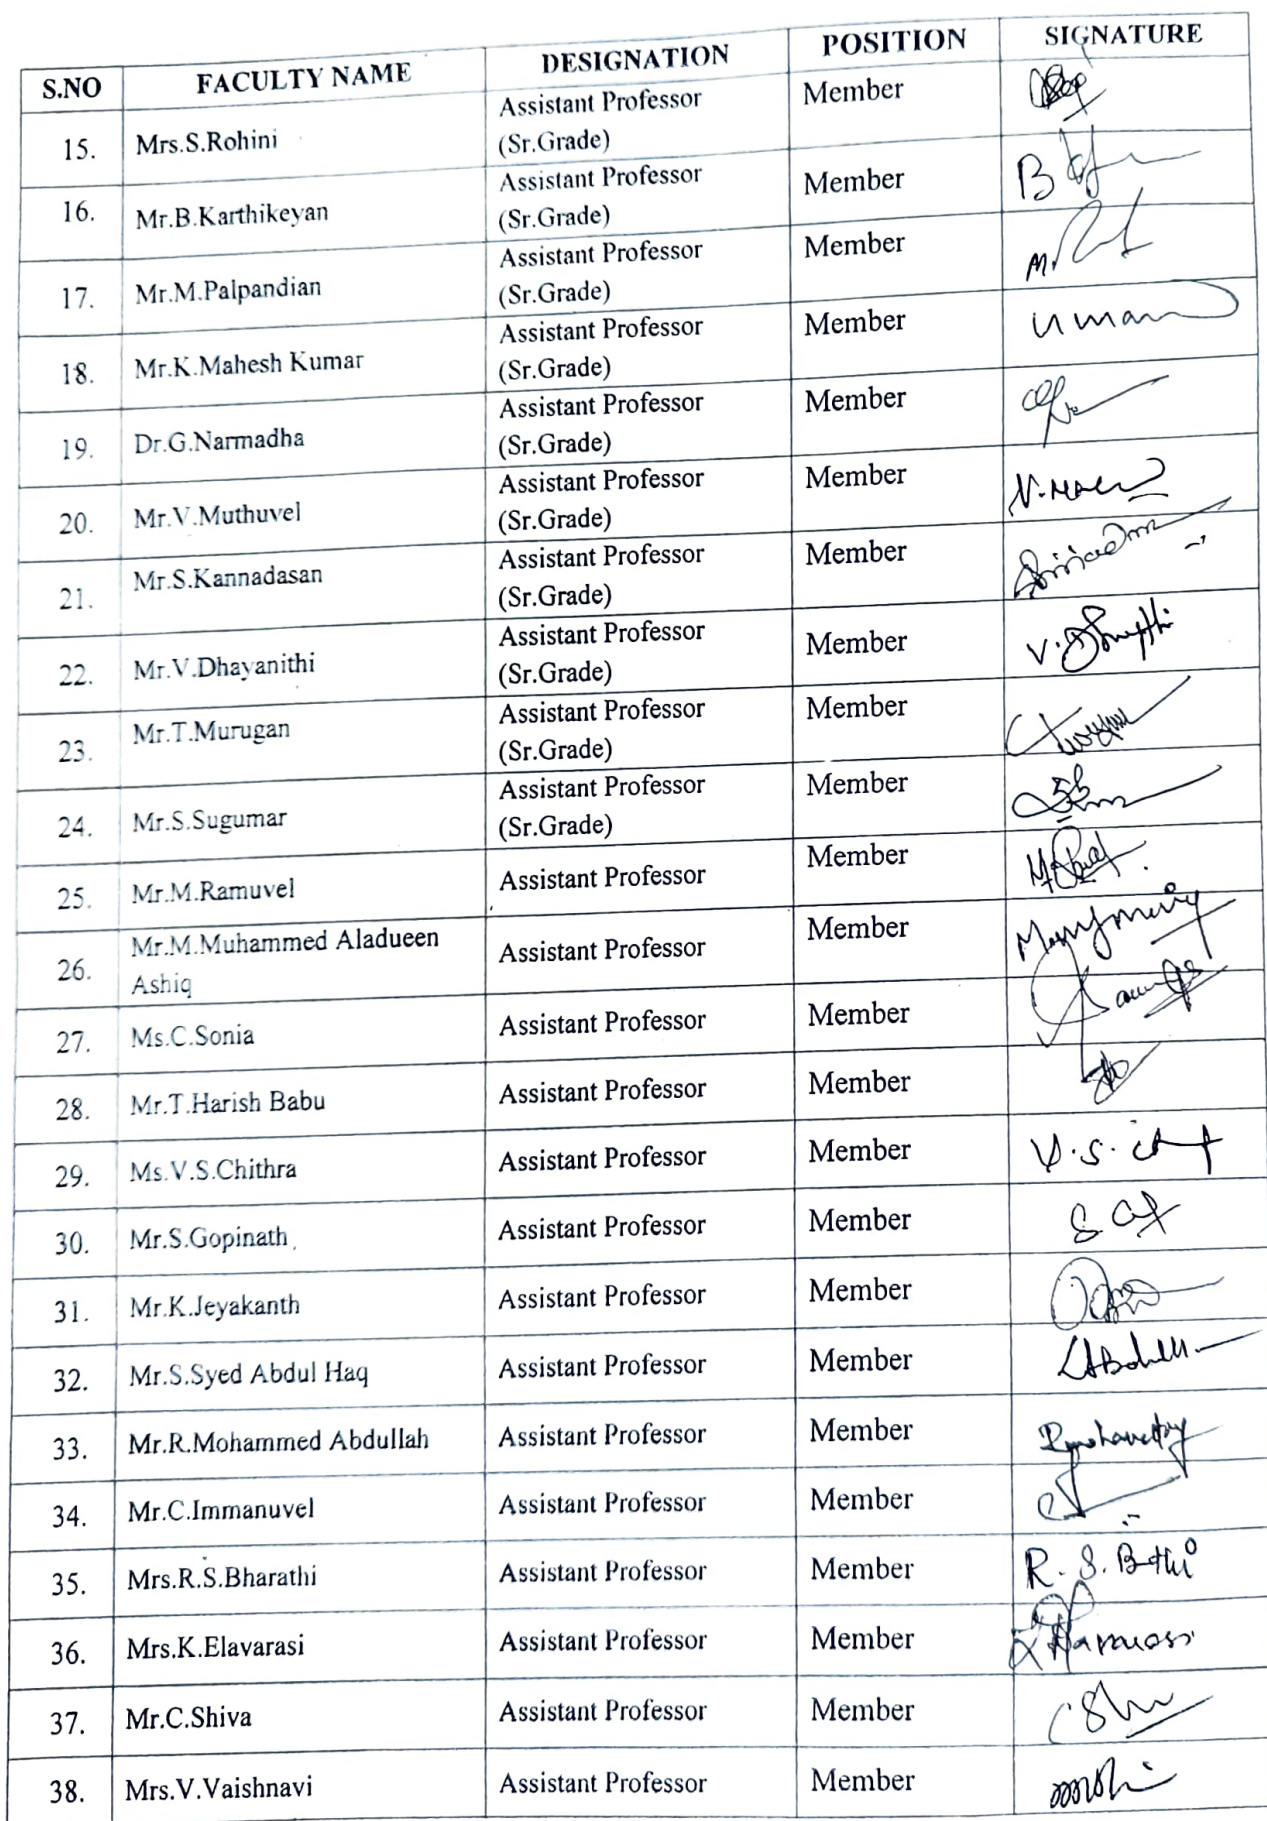 S.NO FACULTY NAME DESIGNATION POSITION SIGNATURE
15. Mrs.S.Rohini Assistant Professor Member
(Sr.Grade)
16. Mr.B.Karthikeyan Assistant Professor Member B
(Sr.Grade)
17. Mr.M.Palpandian Assistant Professor Member M.
(Sr.Grade)
18. Mr.K.Mahesh Kumar Assistant Professor Member
(Sr.Grade)
19. Dr.G.Narmadha Assistant Professor Member
(Sr.Grade)
20. Mr.V.Muthuvel Assistant Professor Member
(Sr.Grade)
21. Mr.S.Kannadasan Assistant Professor Member
(Sr.Grade)
22. Mr.V.Dhayanithi Assistant Professor Member
(Sr.Grade)
23. Mr.T.Murugan Assistant Professor Member
(Sr.Grade)
24. Mr.S.Sugumar Assistant Professor Member
(Sr.Grade)
25. Mr.M.Ramuvel Assistant Professor Member
26. Mr.M.Muhammed Aladueen Assistant Professor Member
Ashiq
27. Ms.C.Sonia Assistant Professor Member
28. Mr.T.Harish Babu Assistant Professor Member
29. Ms.V.S.Chithra Assistant Professor Member V.S.
30. Mr.S.Gopinath Assistant Professor Member
31. Mr.K.Jeyakanth Assistant Professor Member
32. Mr.S.Syed Abdul Haq Assistant Professor Member
33. Mr.R.Mohammed Abdullah Assistant Professor Member
34. Mr.C.Immanuvel Assistant Professor Member
35. Mrs.R.S.Bharathi Assistant Professor Member R.S.
36. Mrs.K.Elavarasi Assistant Professor Member
37. Mr.C.Shiva Assistant Professor Member
38. Mrs.V.Vaishnavi Assistant Professor Member